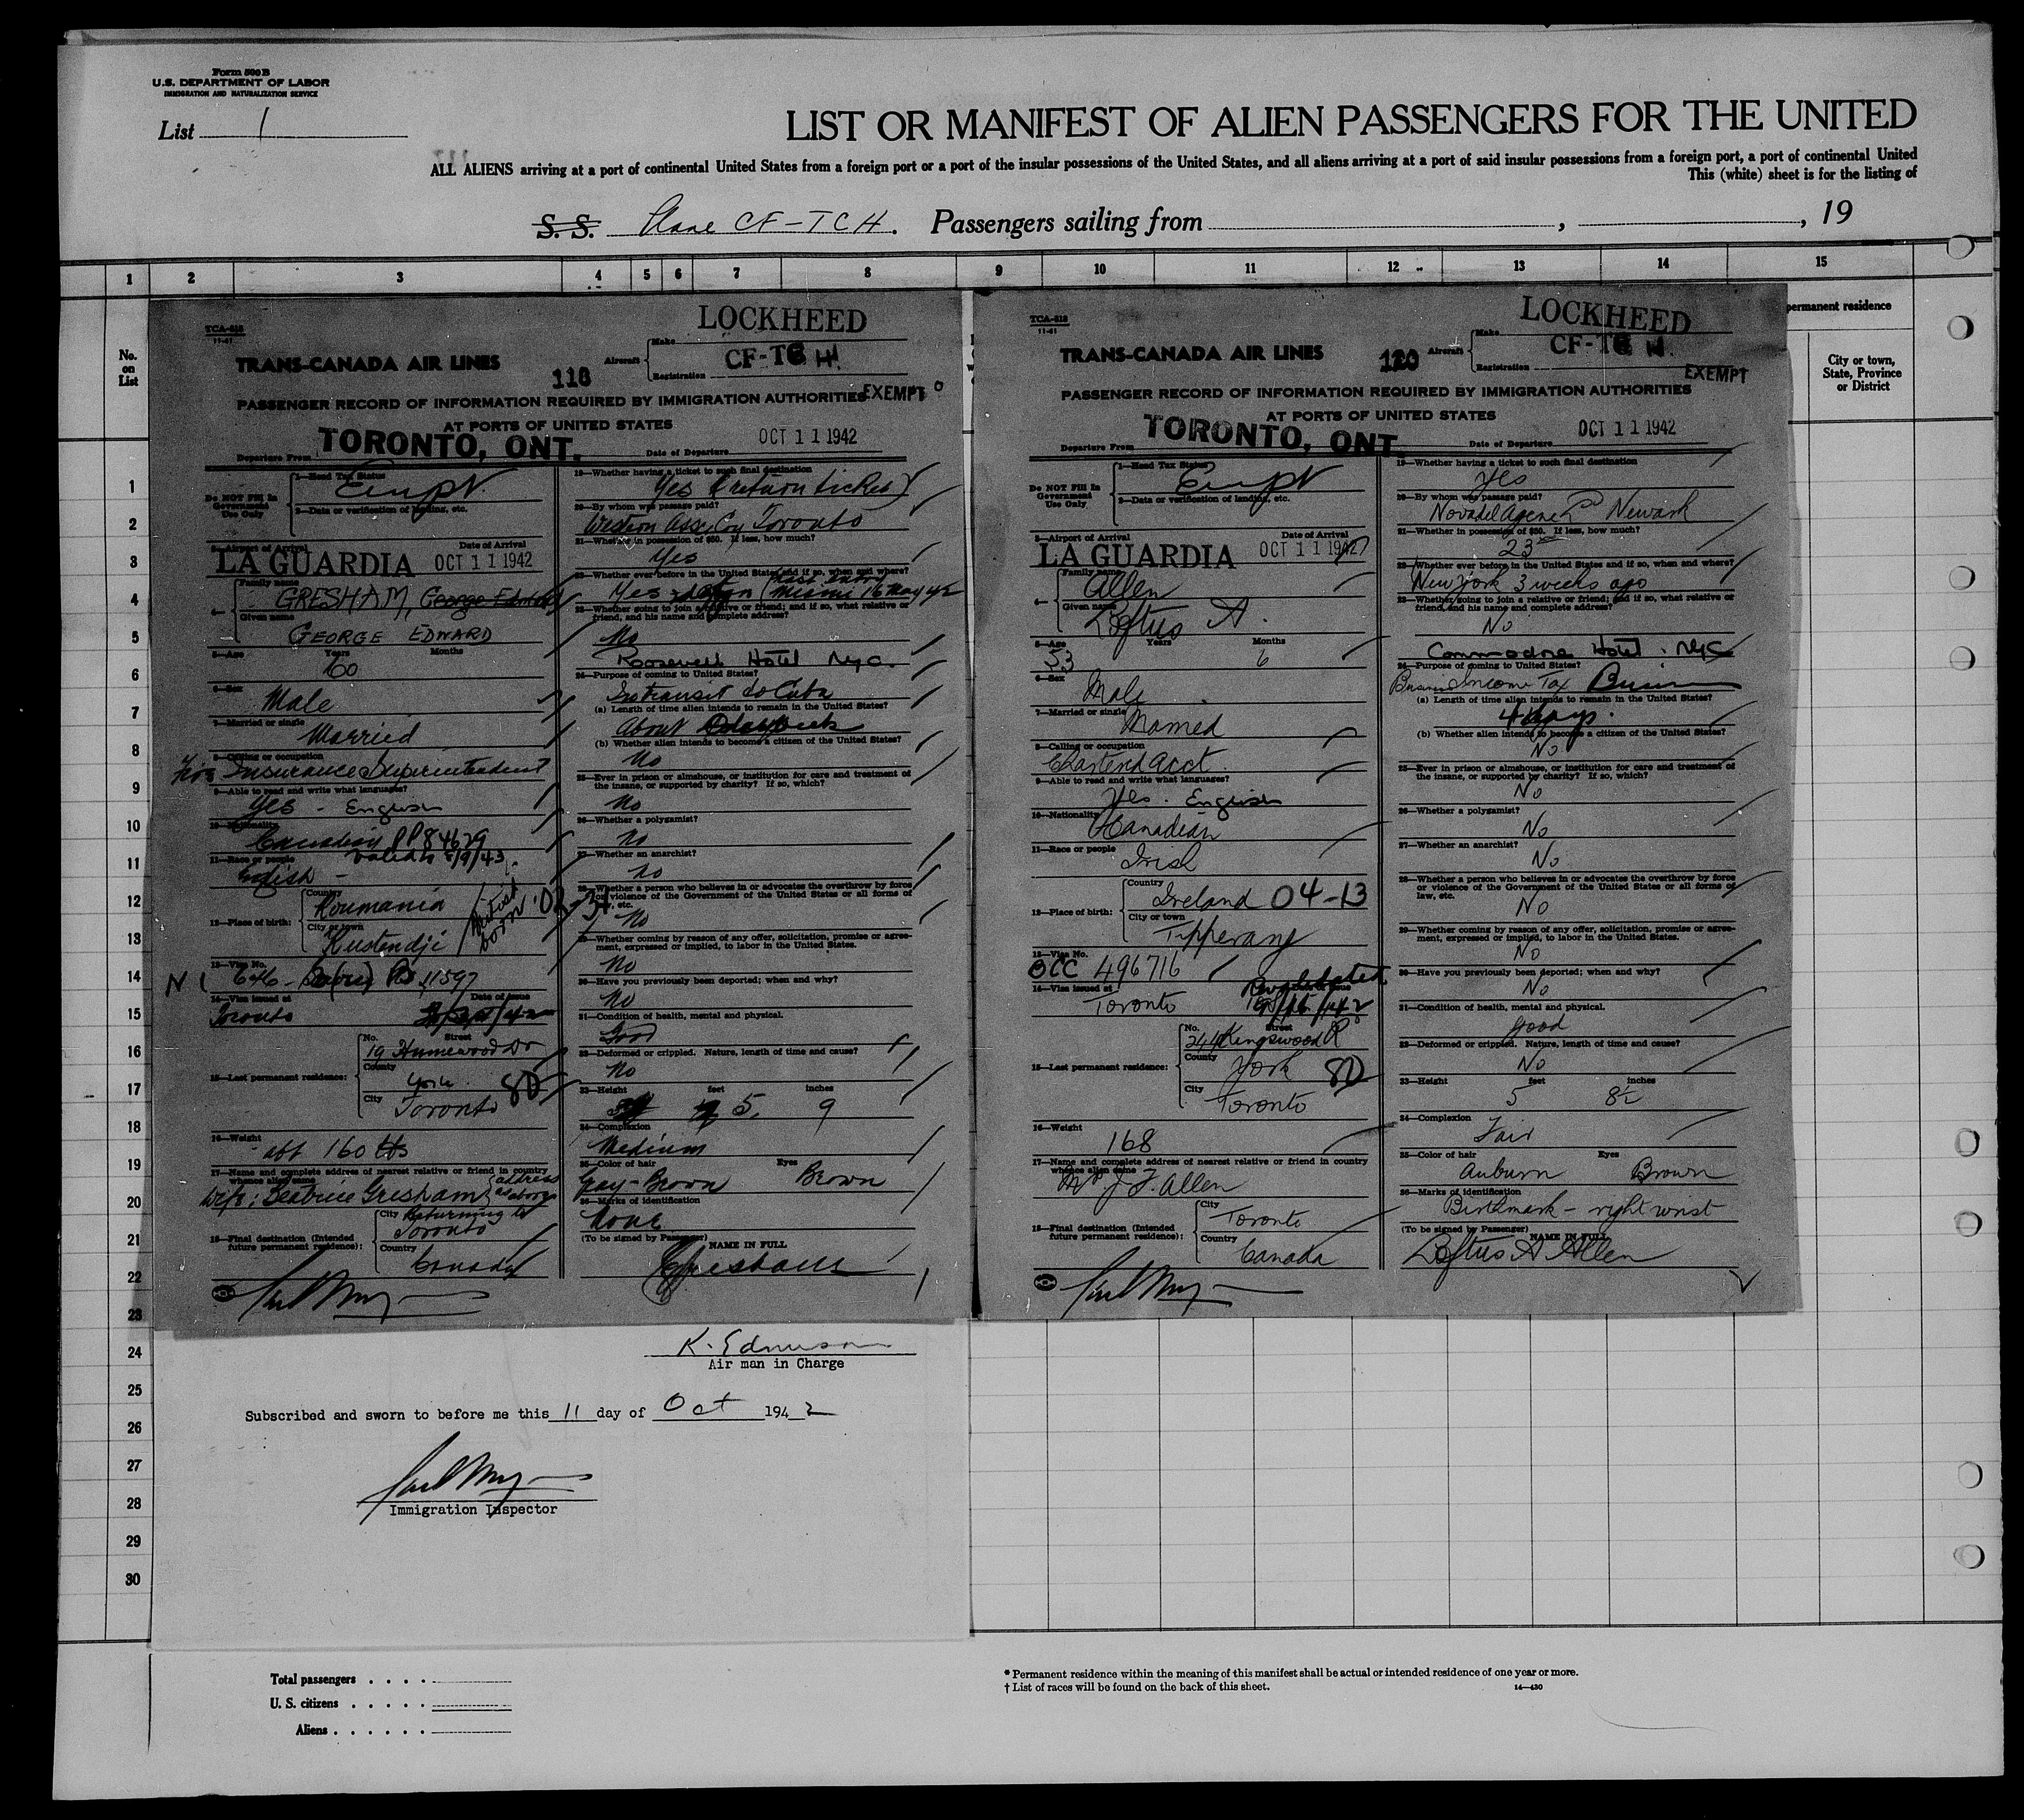 Form 500 B
U.S. DEPARTMENT OF LABOR
IMMIGRATION AND NATURALIZATION SERVICE
List 1
LIST OR MANIFEST OF ALIEN PASSENGERS FOR THE UNITED
ALL ALIENS arriving at a port of continental United States from a foreign port or a part of the insular possessions of the United States, and all aliens arriving at a port of said insular possessions from a foreign port, a port of continental United
This (white) sheet is for the listing of
S. S. Plane CF-TCH. Passengers sailing from , , 19
1 2 3 4 5 6 7 8 9 10 11 12 13 14 15
permanent residence
No. on List
City or town, State, Province or District
1
2
3
4
5
6
7
8
9
10
11
12
13
14
15
16
17
18
19
20
21
22
23
24
25
26
27
28
29
30
TCA-515
11-41
LOCKHEED
TRANS-CANADA AIR LINES
118
Aircraft Make
Registration CF-TCH
EXEMPT
PASSENGER RECORD OF INFORMATION REQUIRED BY IMMIGRATION AUTHORITIES
AT PORTS OF UNITED STATES
Departure From TORONTO, ONT. Date of Departure OCT 11 1942
Do NOT Fill In Government Use Only
1—Head Tax Status
2—Data or verification of landing, etc.
3—Airport of Arrival LA GUARDIA Date of Arrival OCT 11 1942
4— Family name GRESHAM, George Edward
Given name GEORGE EDWARD
5—Age Years 60 Months
6—Sex Male
7—Married or single Married
8—Calling or occupation Insurance Superintendent
9—Able to read and write what languages? Yes - English
10—Nationality Canadian PP84629
Valid to 5/9/43
11—Race or people English -
12—Place of birth: Country Roumania
City or town Kustendji
British born
13—Visa No. 646
14—Visa issued at Toronto Date of Issue
15—Last permanent residence: No. Street 19 Humewood Dr
County York
City Toronto 80
16—Weight abt 160 lbs
17—Name and complete address of nearest relative or friend in country whence alien came
Wife: Beatrice Gresham address as above
18—Final destination (Intended future permanent residence): City Returning to Toronto
Country Canada
19—Whether having a ticket to such final destination
Yes (return ticket)
20—By whom was passage paid?
Western Assce Coy Toronto
21—Whether in possession of $50. If less, how much?
Yes
22—Whether ever before in the United States and if so, when and where?
Yes Last entry Miami 16 May 42
23—Whether going to join a relative or friend; and if so, what relative or friend, and his name and complete address?
No
Roosevelt Hotel NYC.
24—Purpose of coming to United States?
In transit to Cuba
(a) Length of time alien intends to remain in the United States?
About
(b) Whether alien intends to become a citizen of the United States?
No
25—Ever in prison or almshouse, or institution for care and treatment of the insane, or supported by charity? If so, which?
No
26—Whether a polygamist?
No
27—Whether an anarchist?
No
28—Whether a person who believes in or advocates the overthrow by force or violence of the Government of the United States or all forms of law, etc.
No
29—Whether coming by reason of any offer, solicitation, promise or agreement, expressed or implied, to labor in the United States.
No
30—Have you previously been deported; when and why?
No
31—Condition of health, mental and physical.
Good
32—Deformed or crippled. Nature, length of time and cause?
No
33—Height feet 5 inches 9
34—Complexion
Medium
35—Color of hair Gray-Brown Eyes Brown
36—Marks of identification
None
(To be signed by Passenger) NAME IN FULL
Gresham
TCA-515
11-41
LOCKHEED
TRANS-CANADA AIR LINES
120
Aircraft Make
Registration CF-TCH
EXEMPT
PASSENGER RECORD OF INFORMATION REQUIRED BY IMMIGRATION AUTHORITIES
AT PORTS OF UNITED STATES
Departure From TORONTO, ONT. Date of Departure OCT 11 1942
Do NOT Fill In Government Use Only
1—Head Tax Status
2—Data or verification of landing, etc.
3—Airport of Arrival LA GUARDIA Date of Arrival OCT 11 1942
4— Family name Allen
Given name Loftus A.
5—Age Years 53 Months 6
6—Sex Male
7—Married or single Married
8—Calling or occupation Chartered Acct.
9—Able to read and write what languages? Yes. English
10—Nationality Canadian
11—Race or people Irish
12—Place of birth: Country Ireland 04-13
City or town Tipperary
13—Visa No. BCC 496716
14—Visa issued at Toronto
15—Last permanent residence: No. Street 244 Kingswood Rd
County York 80
City Toronto
16—Weight 168
17—Name and complete address of nearest relative or friend in country whence alien came
J. F. Allen
18—Final destination (Intended future permanent residence): City Toronto
Country Canada
19—Whether having a ticket to such final destination
Yes
20—By whom was passage paid?
Novadel Agene Newark
21—Whether in possession of $50. If less, how much?
23
22—Whether ever before in the United States and if so, when and where?
New York 3 weeks ago
23—Whether going to join a relative or friend; and if so, what relative or friend, and his name and complete address?
No
Commodore Hotel. NYC
24—Purpose of coming to United States?
Business Income Tax Business
(a) Length of time alien intends to remain in the United States?
4 days.
(b) Whether alien intends to become a citizen of the United States?
No
25—Ever in prison or almshouse, or institution for care and treatment of the insane, or supported by charity? If so, which?
No
26—Whether a polygamist?
No
27—Whether an anarchist?
No
28—Whether a person who believes in or advocates the overthrow by force or violence of the Government of the United States or all forms of law, etc.
No
29—Whether coming by reason of any offer, solicitation, promise or agreement, expressed or implied, to labor in the United States.
No
30—Have you previously been deported; when and why?
No
31—Condition of health, mental and physical.
Good
32—Deformed or crippled. Nature, length of time and cause?
No
33—Height feet 5 inches 8½
34—Complexion
Fair
35—Color of hair Auburn Eyes Brown
36—Marks of identification
Birthmark - right wrist
(To be signed by Passenger) NAME IN FULL
Loftus A Allen
Air man in Charge
Subscribed and sworn to before me this 11 day of Oct 1942
Immigration Inspector
Total passengers . . . .
U. S. citizens . . . . .
Aliens . . . . . .
* Permanent residence within the meaning of this manifest shall be actual or intended residence of one year or more.
† List of races will be found on the back of this sheet.
14—430